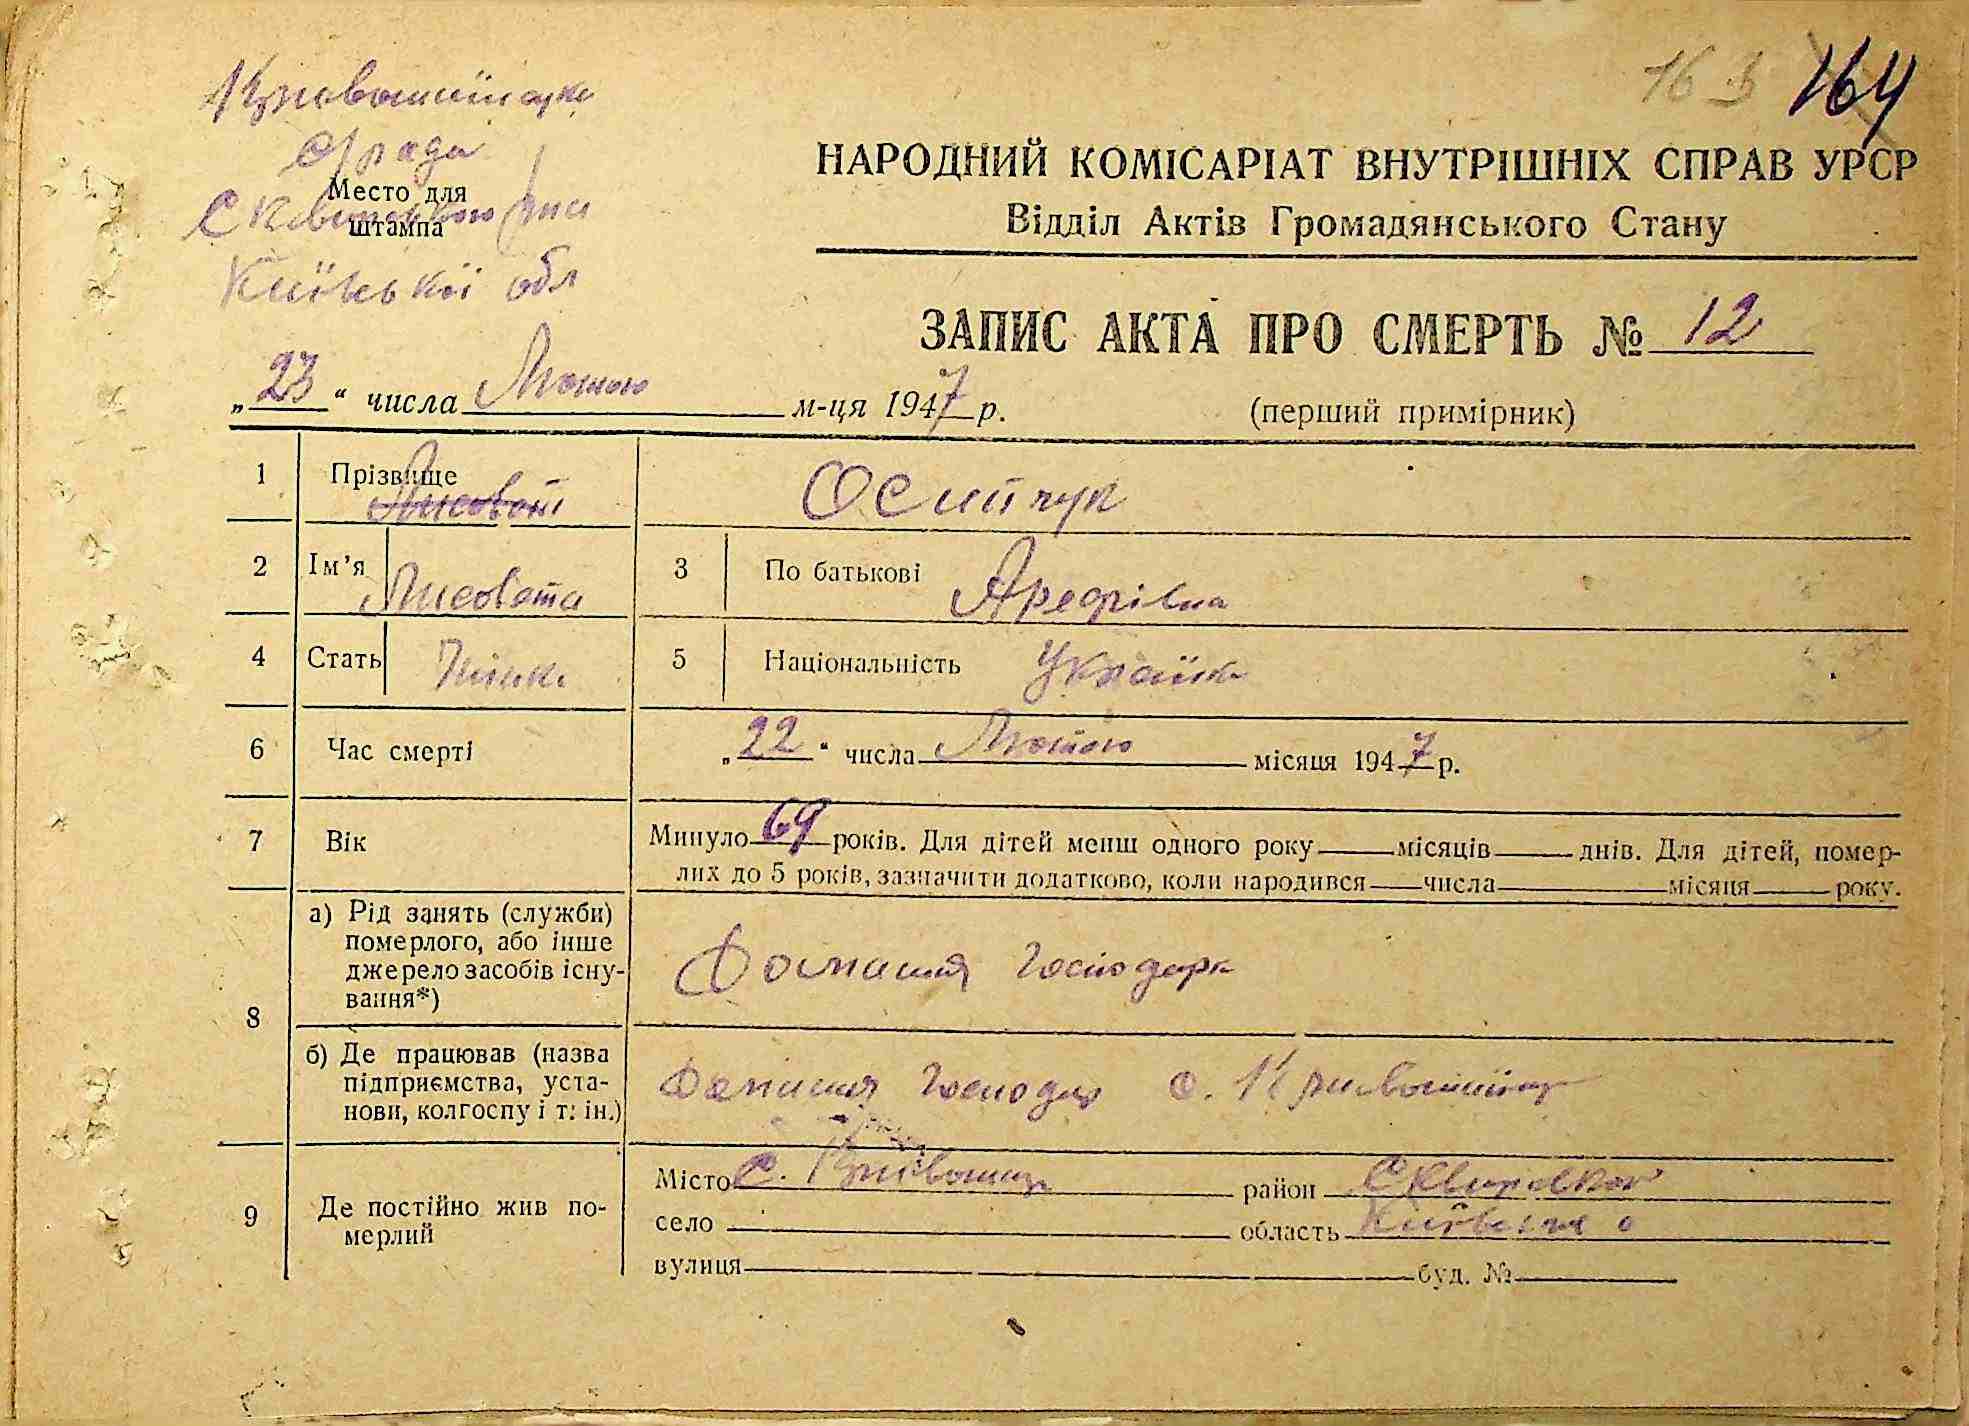 164
Кривошиїнська
с/рада
Место для
штампа
Сквирського р-на
Київської обл
НАРОДНИЙ КОМІСАРІАТ ВНУТРІШНІХ СПРАВ УРСР
Відділ Актів Громадянського Стану
ЗАПИС АКТА ПРО СМЕРТЬ № 12
„23“ числа Лютого м-ця 1947 р.
(перший примірник)
1 Прізвище Осипчук
2 Ім'я Лисовета 3 По батькові Арефівна
4 Стать Жінка 5 Національність Українка
6 Час смерті „22“ числа Лютого місяця 1947 р.
7 Вік Минуло 69 років. Для дітей менш одного року місяців днів. Для дітей, помер-
лих до 5 років, зазначити додатково, коли народився числа місяця року.
8 а) Рід занять (служби)
померлого, або інше
джерело засобів існу-
вання*)
Домашня господарк
б) Де працював (назва
підприємства, уста-
нови, колгоспу і т. ін.)
Домашня господар с. Кривошиїнц
9 Де постійно жив по-
мерлий
Місто с. Кривошиїнц район Сквирський
село область Київська о
вулиця буд. №